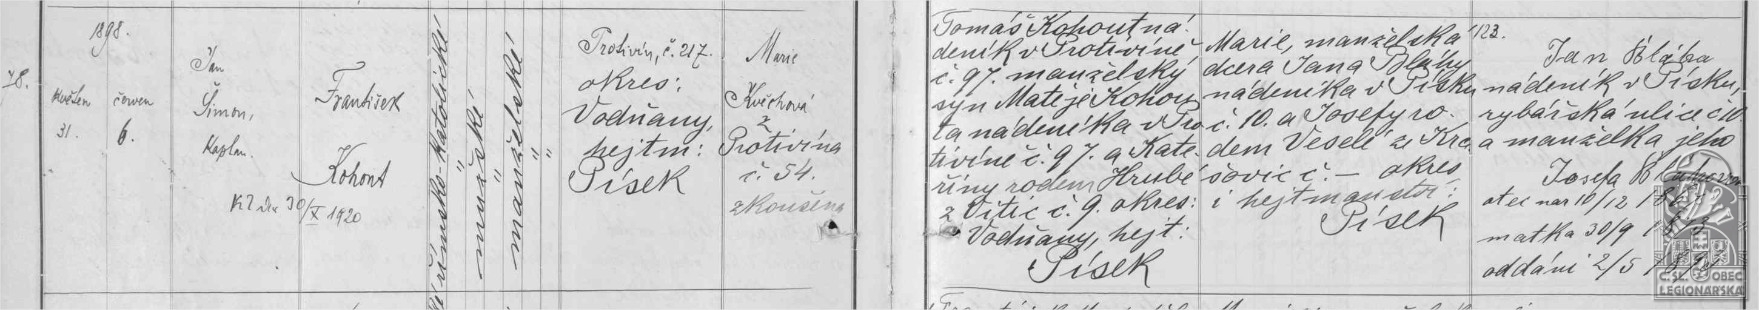 1898.
78.
květen
31.
červen
6.
Jan
Šimon,
kaplan.
František
Kohout
KŽ dne 30/X 1920
římsko-katolické
mužské
manželské
Protivín, č. 217.
okres:
Vodňany,
hejtm:
Písek
Marie
Květchová
z
Protivína
č. 54.
zkoušena
Tomáš Kohout ná-
deník v Protivíně
č. 97. manželský
syn Matěje Kohou
ta nádeníka v Pro
tivíně č. 97. a Kate-
řiny rodem Hrubé
z Vitic č. 9. okres:
Vodňany, hejt:
Písek
123.
Marie, manželská
dcera Jana Bláhy
nádeníka v Písku
č. 10. a Josefy ro-
dem Veselé ze Kra
šovic č. — okres
i hejtmanství:
Písek
Jan Bláha
nádeník v Písku,
rybářská ulice č 10
a manželka jeho
Josefa
otec nar 10/12
matka 30/9
oddáni 2/5
Č.SL. OBEC
LEGIONÁŘSKÁ